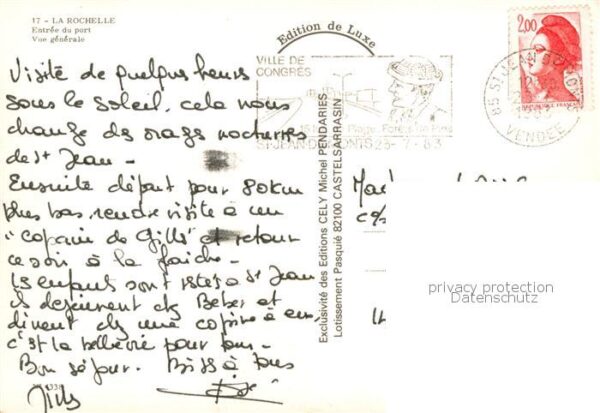 17 - LA ROCHELLE
Entrée du port
Vue générale
Edition de Luxe
VILLE DE
CONGRÈS
ST JEAN DE MONTS 25-7-83
2,00
REPUBLIQUE FRANÇAISE
85 ST JEAN DE MONTS
VENDEE
Visite de quelques heures
sous le soleil, cela nous
change des orages nocturnes
de St Jean -
Ensuite départ pour 80 km
plus bas, rendre visite à un
"copain de Gilles" et retour
ce soir à la fraiche -
Les enfants sont restés à St Jean
ils dejeunent chez Beber et
dinent chez une copine à eux
c'est la belle vie pour tous -
Bon séjour. Bises à tous
Exclusivité des Editions CELY Michel PENDARIES
Lotissement Pasquié 82100 CASTELSARRASIN
privacy protection
Datenschutz